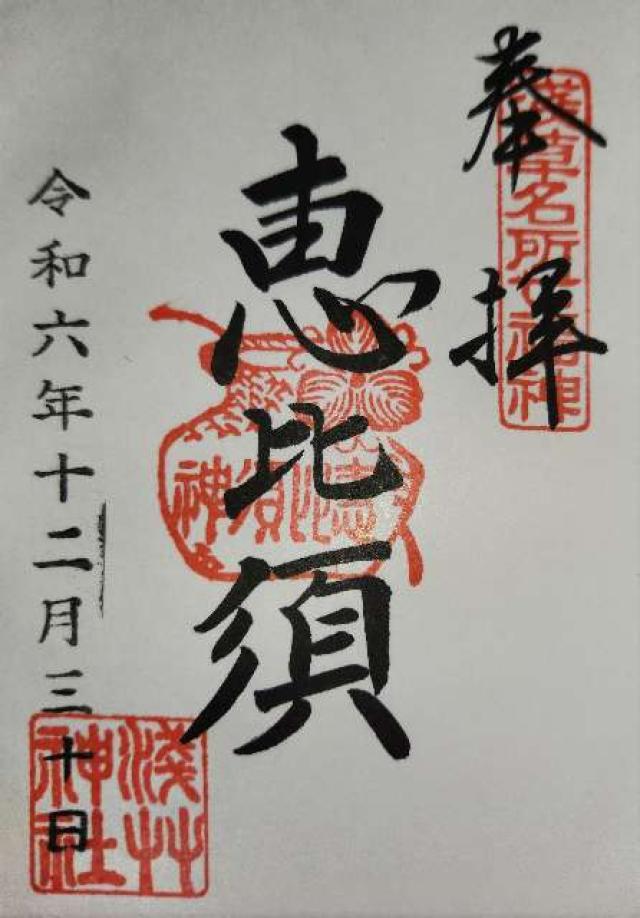 奉拝
浅草名所七福神
恵比須
恵比須神
令和六年十二月三十日
浅草神社